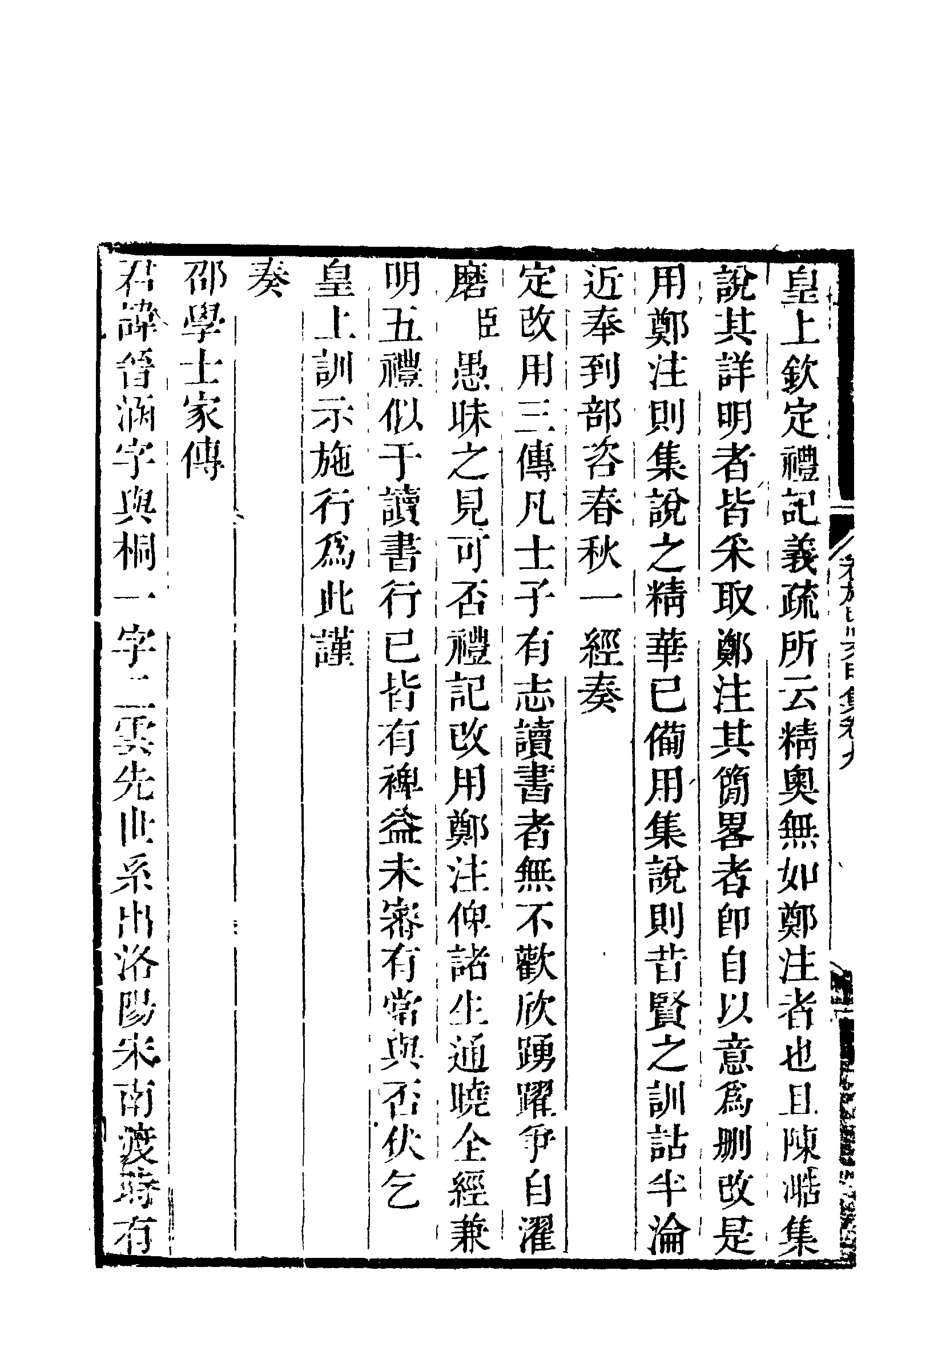 皇上欽定禮記義疏所云精奧無如鄭注者也且陳澔集
說其詳明者皆采取鄭注其簡畧者卽自以意爲删改是
用鄭注則集說之精華已備用集說則昔賢之訓詁半淪
近奉到部咨春秋一經奏
定改用三傳凡士子有志讀書者無不歡欣踴躍爭自濯
磨臣愚昧之見可否禮記改用鄭注俾諸生通曉全經兼
明五禮似于讀書行已皆有裨益未審有當與否伏乞
皇上訓示施行爲此謹
奏
邵學士家傳
君諱晉涵字與桐一字二雲先世系出洛陽宋南渡時有
卷施閣文甲集卷九